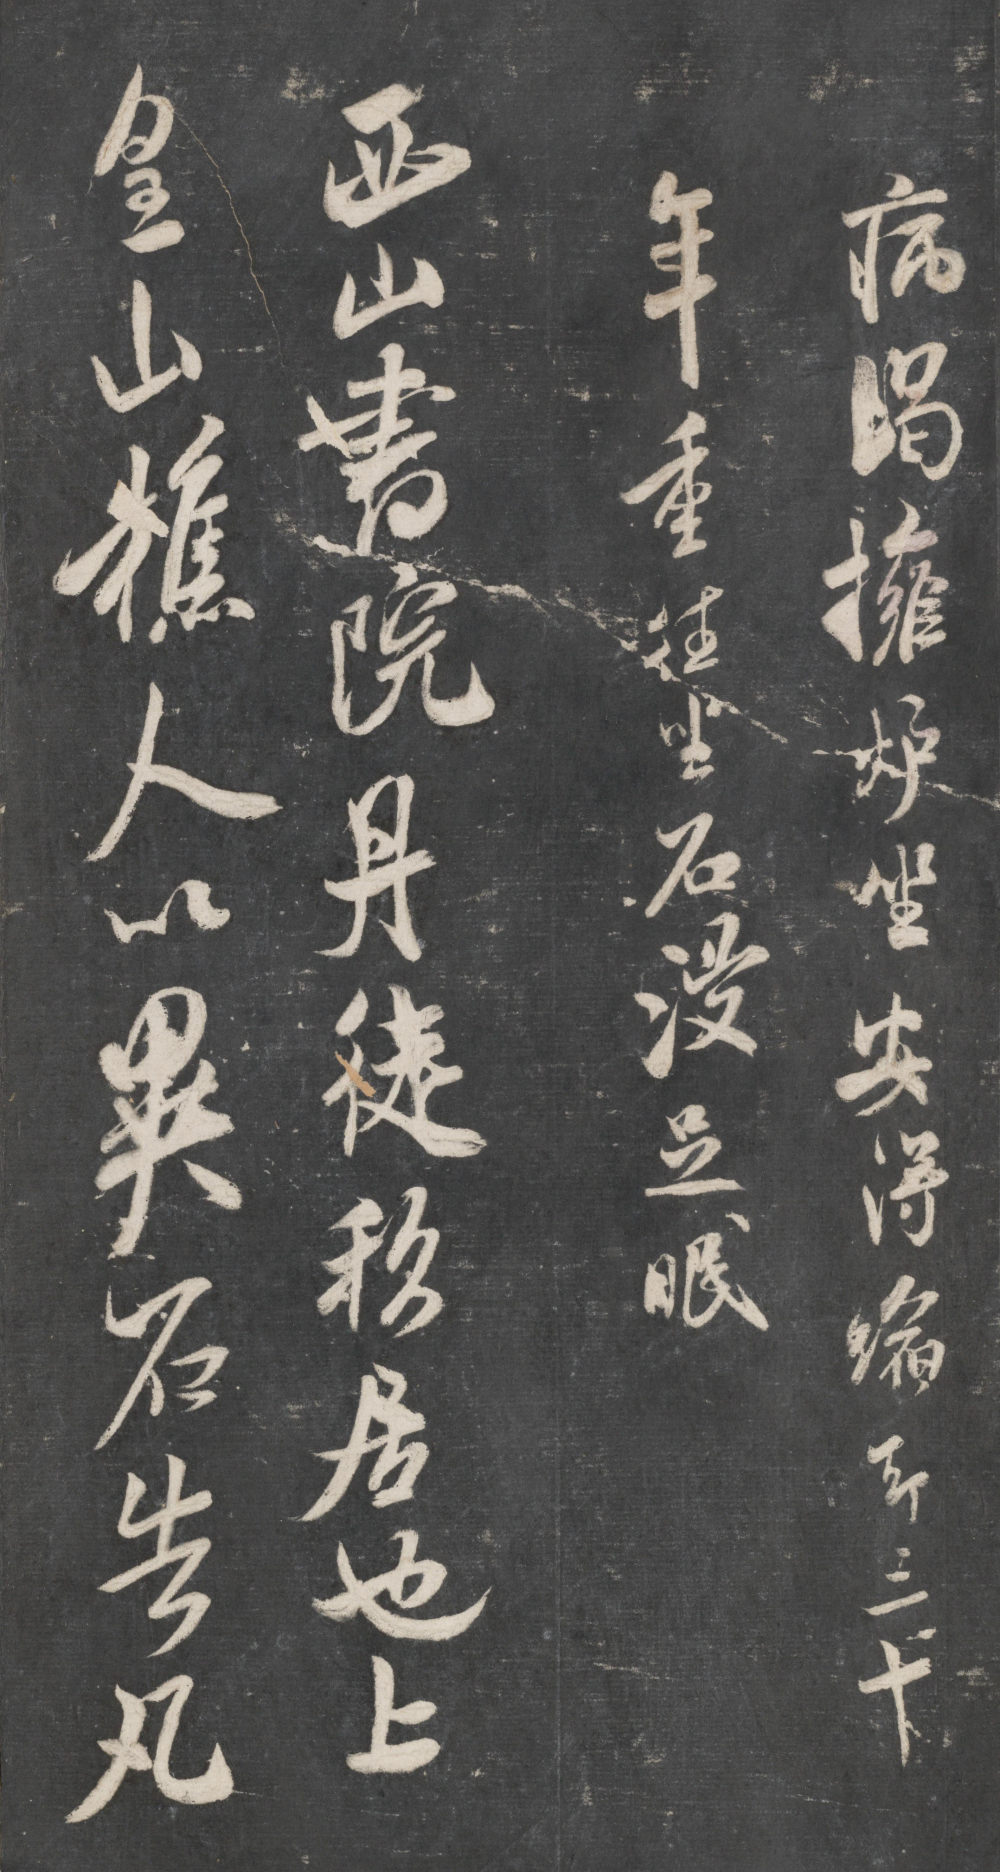 病暍擁炉坐安得縮却三十
年重往坐石浸足眠
西山書院丹徒移居也上
皇山樵人以異石告凡